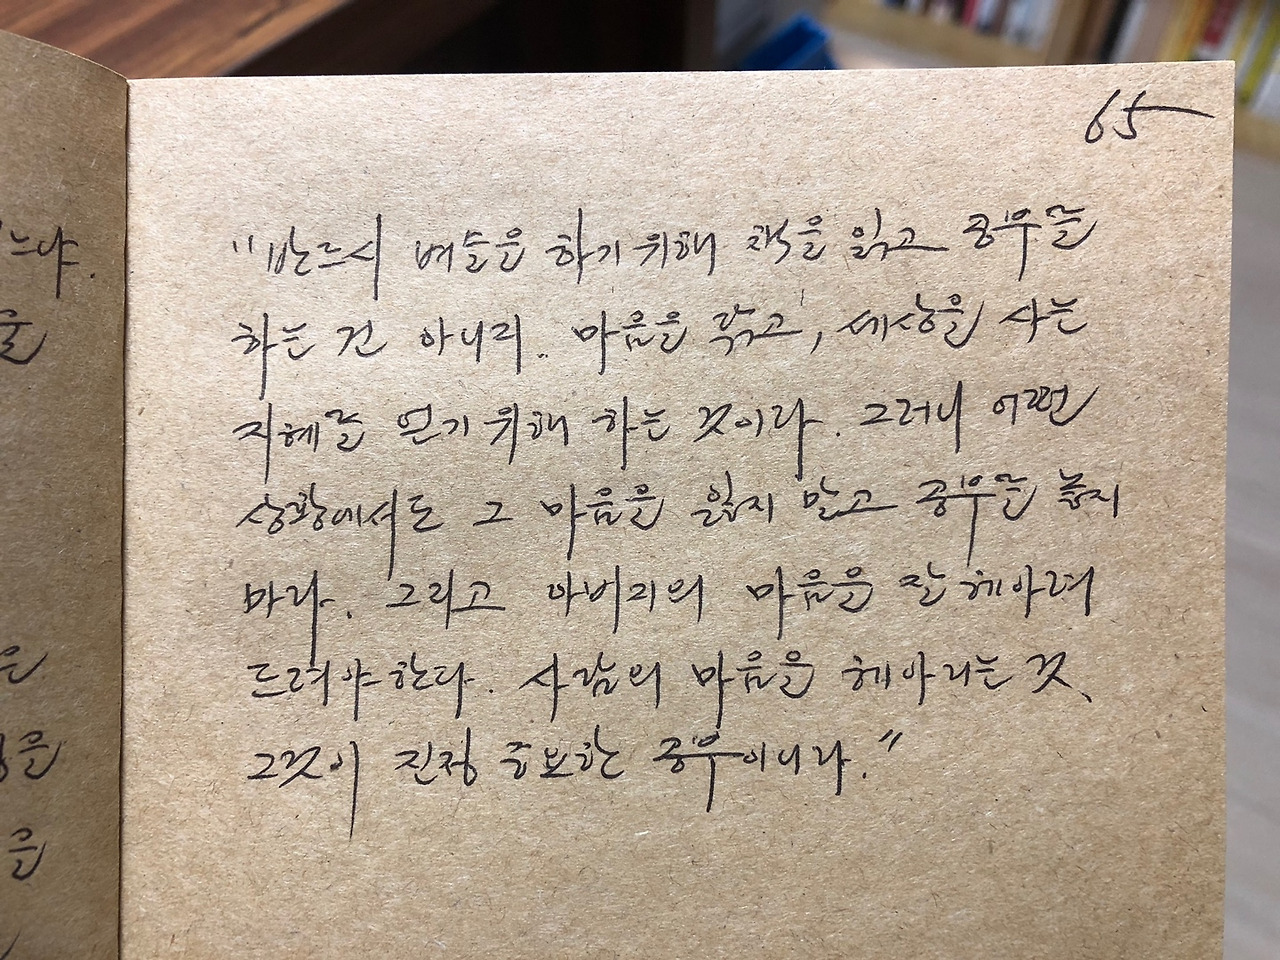 느냐.
을
은
을
은
65
"반드시 벼슬을 하기 위해 책을 읽고 공부를
하는 건 아니리. 마음을 닦고, 세상을 사는
지혜를 얻기 위해 하는 것이라. 그러니 어떤
상황에서도 그 마음을 잃지 말고 공부를 놓지
마라. 그리고 아버지의 마음을 잘 헤아려
드려야 한다. 사람의 마음을 헤아리는 것,
그것이 진정 중요한 공부이니라."